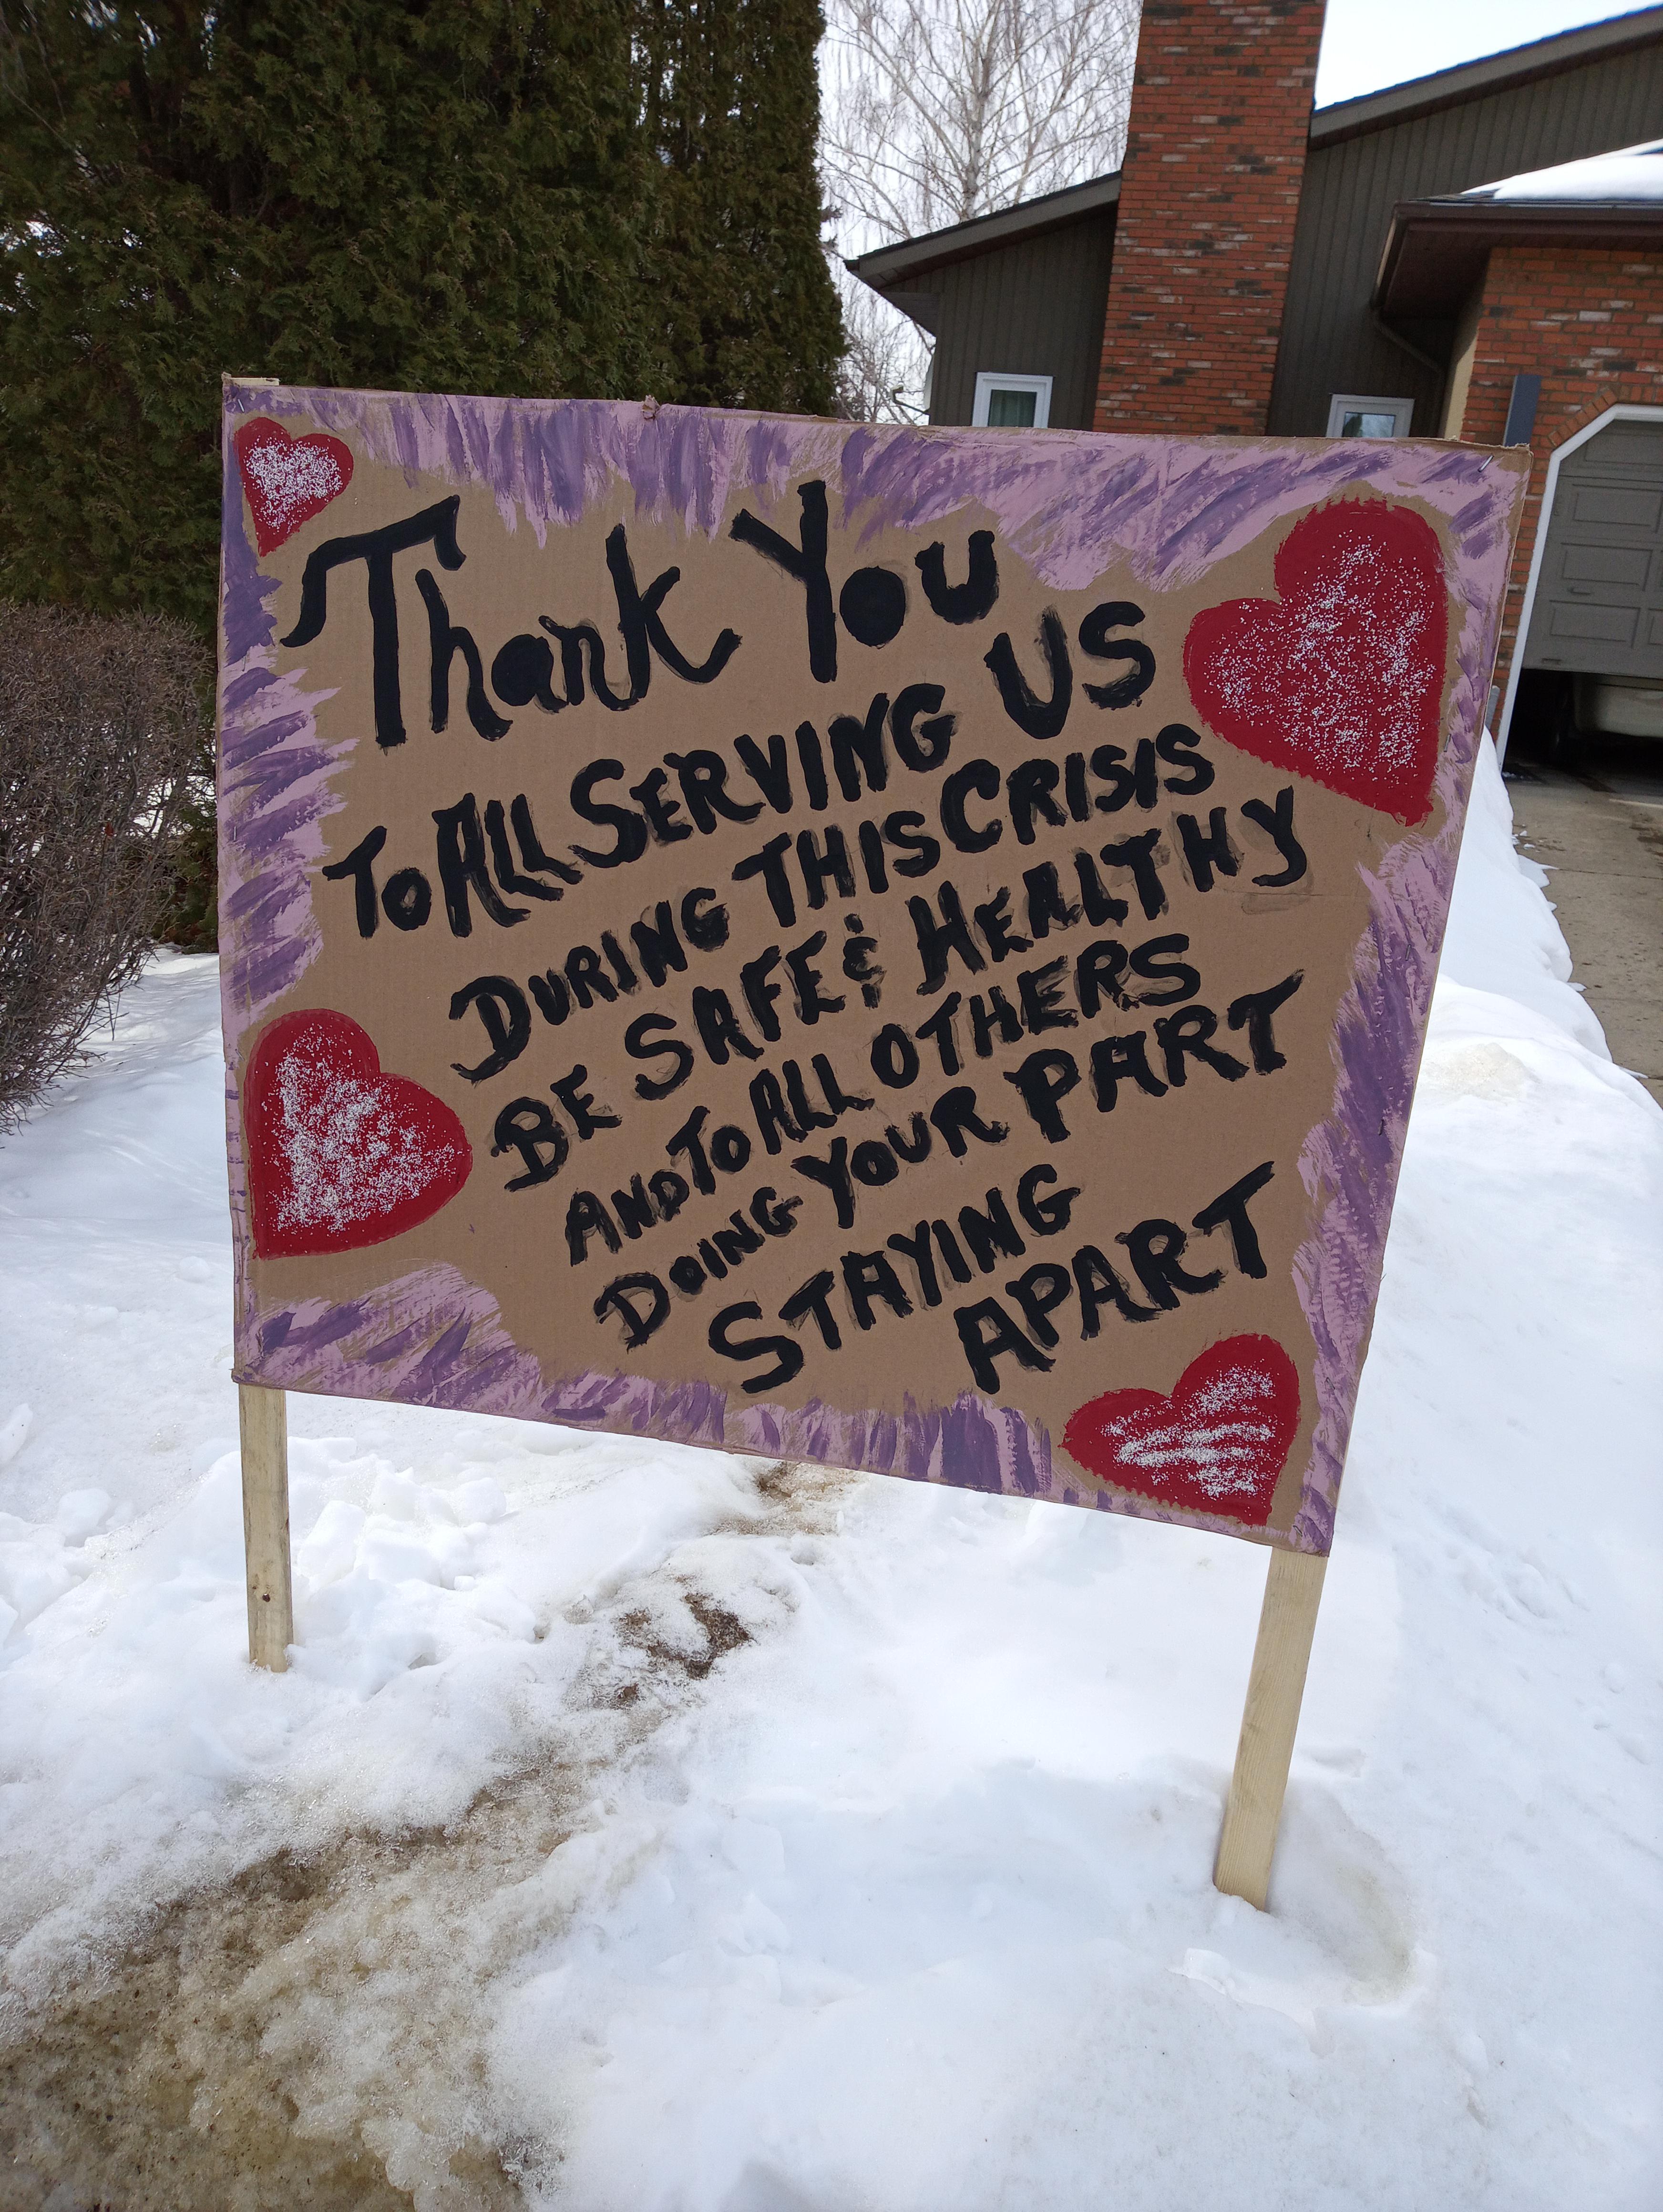 Thank You
To All Serving US
During This Crisis
Be Safe & Healthy
And To All Others
Doing Your Part
Staying
Apart